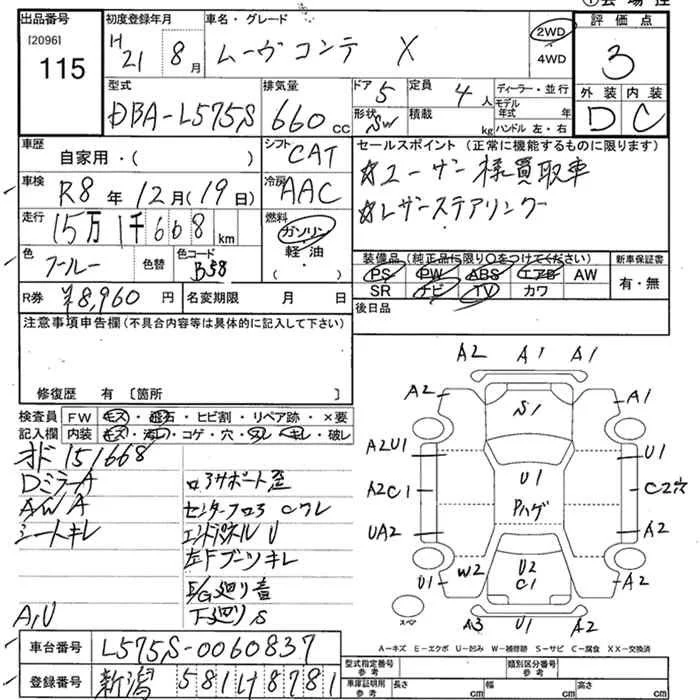 出品番号
[2096]
115
初度登録年月
H21 8月
車名・グレード
ムーヴコンテ X
2WD
4WD
評価点
3
外装 内装
D C
型式
DBA-L575S
排気量
660 cc
ドア 5
形状 SW
定員 4人
積載 kg
ディーラー・並行
モデル年式 年
ハンドル 左・右
車歴
自家用・( )
シフト CAT
セールスポイント (正常に機能するものに限ります)
☆ユーザー様買取車
☆レザーステアリング
車検 R8年12月(19日)
冷房 AAC
走行 15万1千668km
燃料
ガソリン
軽油
( )
色 ブルー 色替
色コード B58
装備品 (純正品に限り○をつけてください)
PS PW ABS エアB AW
SR ナビ TV カワ
新車保証書
有・無
R券 ¥8,960円
名変期限 月 日
後日品
注意事項申告欄(不具合内容等は具体的に記入して下さい)
修復歴 有 [箇所 ]
検査員記入欄
FW キズ・飛石・ヒビ割・リペア跡・×要
内装 キズ・汚レ・コゲ・穴・スレ・キレ・破レ
オド151668
DミラーA
AWA
シートキレ
A,U
ロアサポート歪
センターフロア Cワレ
エンドパネル U
左Fブーツキレ
E/G廻り音
下廻りS
A2 A1 A1
A2 A1
S1
A2U1 U1
U1
A2C1 C2穴
Pハゲ
UA2 A2
W2
U2
C1
U1 A2
スペア
A3 U1 A2
A-キズ E-エクボ U-凹み W-補修跡 S-サビ C-腐食 XX-交換済
車台番号 L575S-0060837
登録番号 新潟 581 け 8781
型式指定番号 参考
類別区分番号 参考
車庫証明用 参考 長さ cm 幅 cm 高さ cm